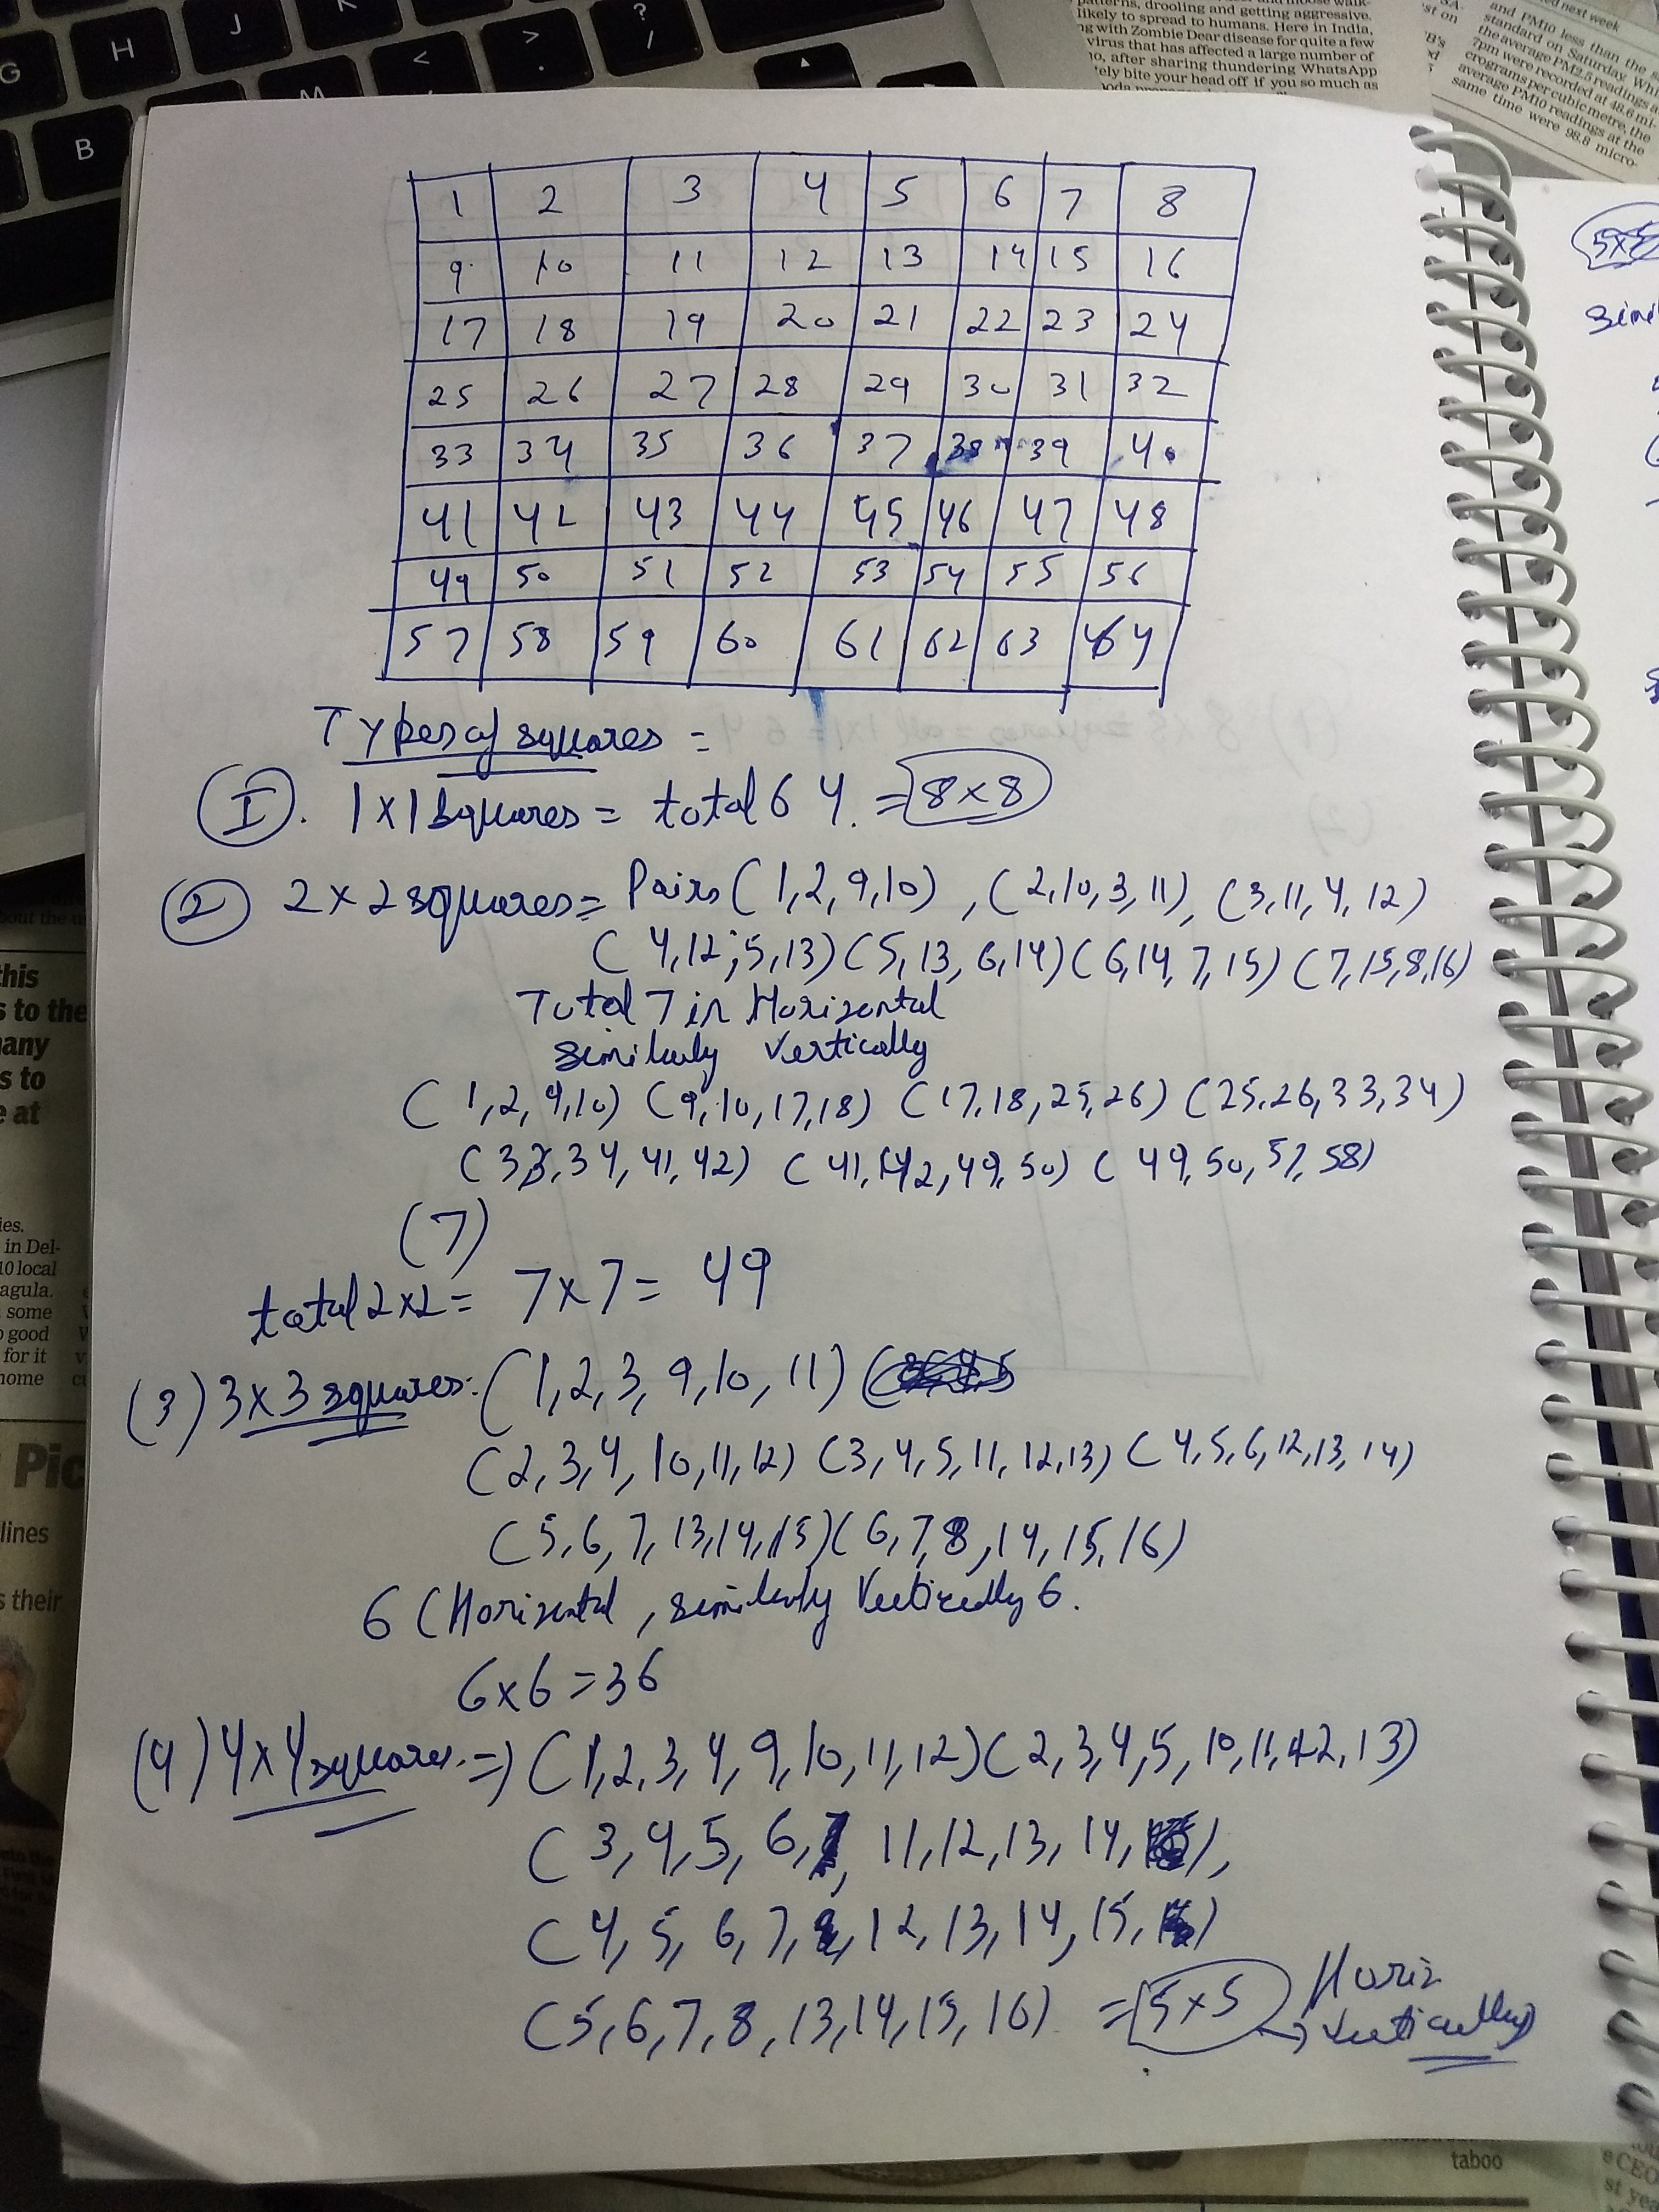 G H J K < > ? / B M
patterns, drooling and getting aggressive.
likely to spread to humans. Here in India,
with Zombie Dear disease for quite a few
virus that has affected a large number of
after sharing thundering WhatsApp
bite your head off if you so much as
next week
and PM10 less than the
standard on Saturday.
the average PM2.5 readings
7pm were recorded at 48.6 mi-
crograms per cubic metre, the
average PM10 readings at the
same time were 98.8 micro-
1 2 3 4 5 6 7 8
9 10 11 12 13 14 15 16
17 18 19 20 21 22 23 24
25 26 27 28 29 30 31 32
33 34 35 36 37 38 39 40
41 42 43 44 45 46 47 48
49 50 51 52 53 54 55 56
57 58 59 60 61 62 63 64
Types of squares =
(I). 1x1 squares = total 64. = 8x8
(2) 2x2 squares = Pairs (1,2,9,10), (2,10,3,11), (3,11,4,12)
(4,12,5,13) (5,13,6,14) (6,14,7,15) (7,15,8,16)
Total 7 in Horizontal
similarly Vertically
(1,2,9,10) (9,10,17,18) (17,18,25,26) (25,26,33,34)
(33,34,41,42) (41,42,49,50) (49,50,57,58)
(7)
total 2x2 = 7x7 = 49
(3) 3x3 squares: (1,2,3,9,10,11)
(2,3,4,10,11,12) (3,4,5,11,12,13) (4,5,6,12,13,14)
(5,6,7,13,14,15) (6,7,8,14,15,16)
6 (Horizontal, similarly Vertically 6.
6x6 = 36
(4) 4x4 squares => (1,2,3,4,9,10,11,12) (2,3,4,5,10,11,12,13)
(3,4,5,6, 11,12,13,14, ),
(4,5,6,7, 12,13,14,15, )
(5,6,7,8,13,14,15,16) = 5x5 Horiz
→ vertically
this
s to the
many
s to
e at
in Del-
10 local
agula.
some
good
for it
home
Pic
lines
s their
taboo